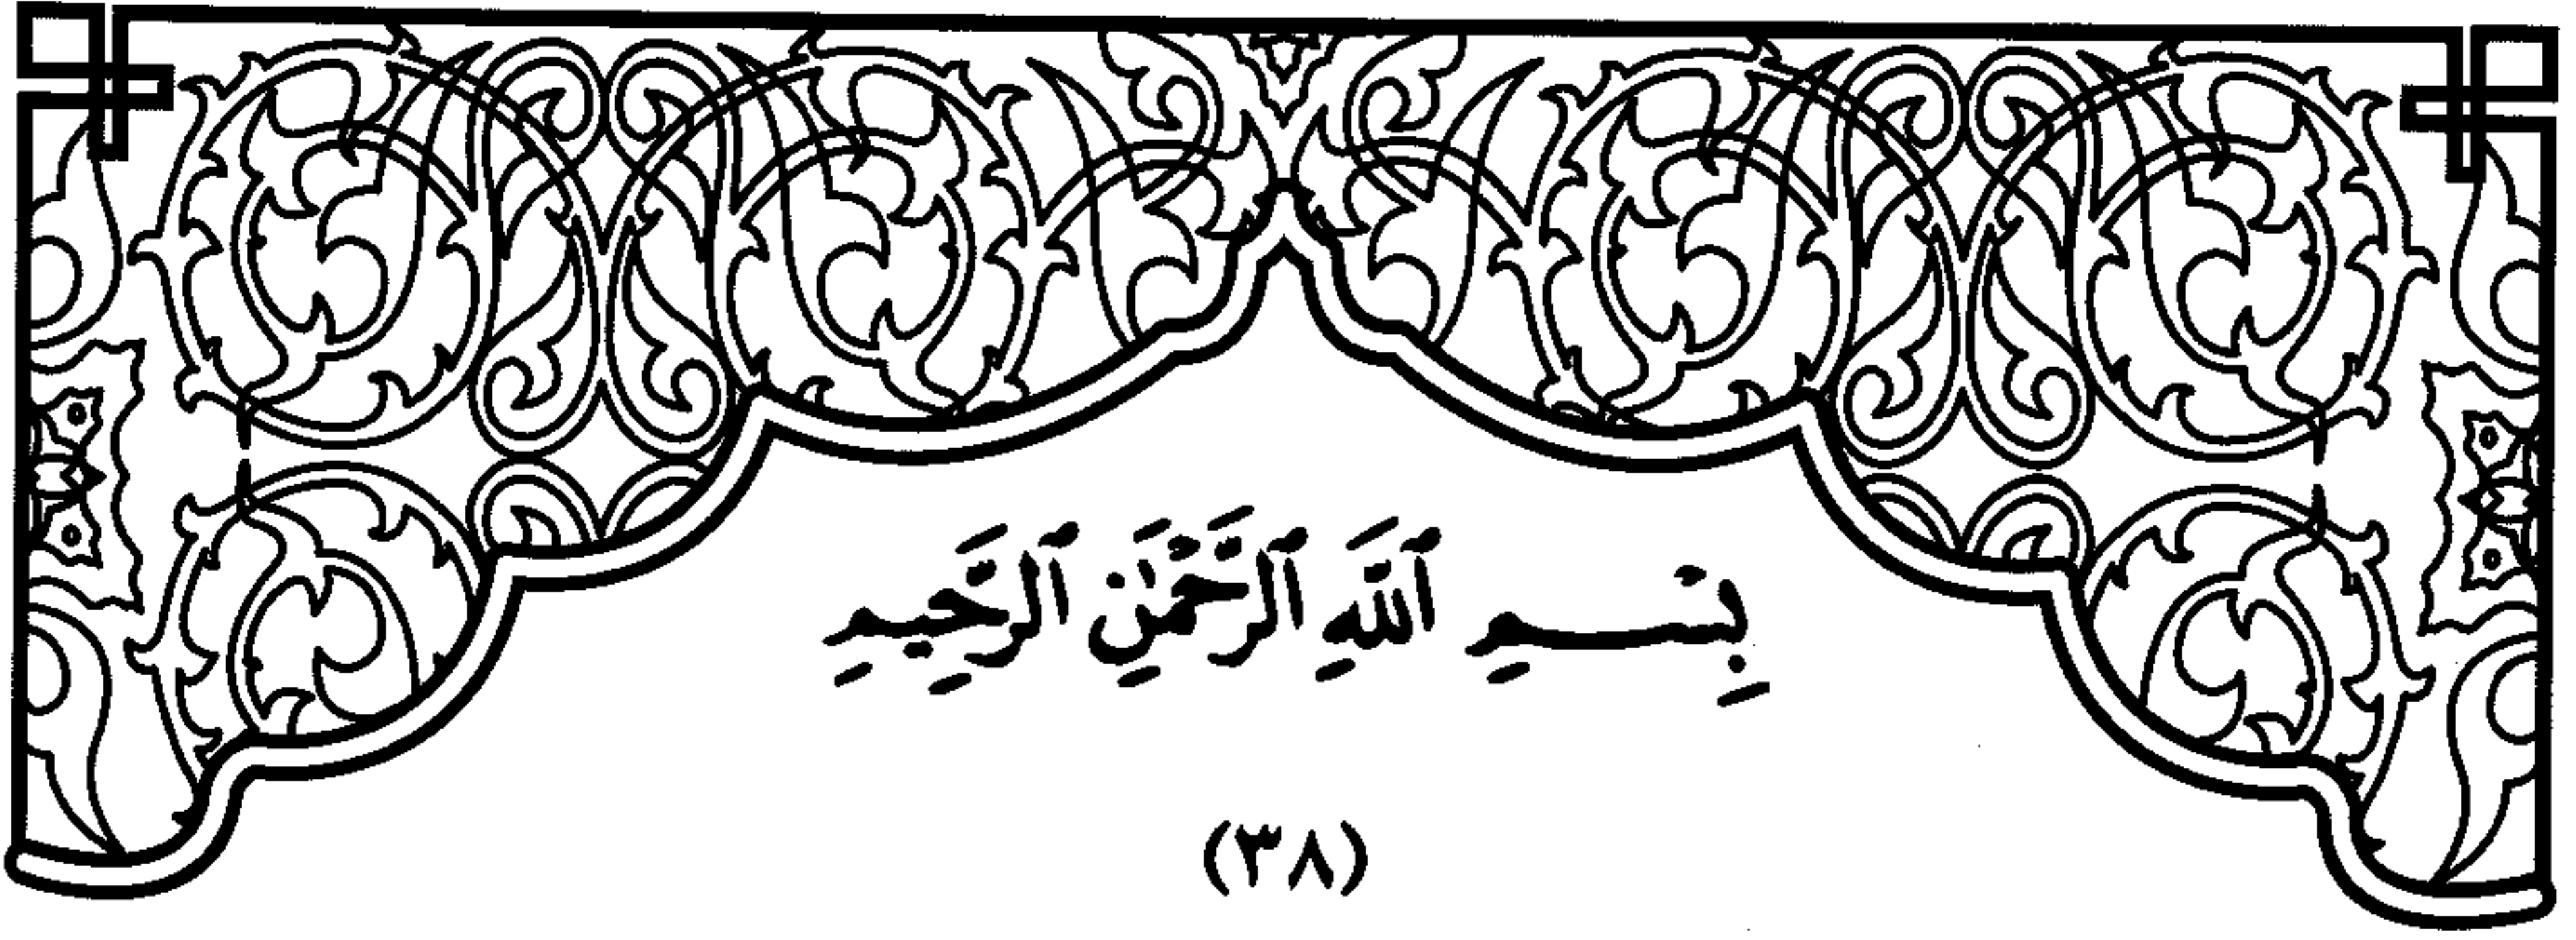 بِسْمِ ٱللَّهِ ٱلرَّحْمَٰنِ ٱلرَّحِيمِ
(٣٨)